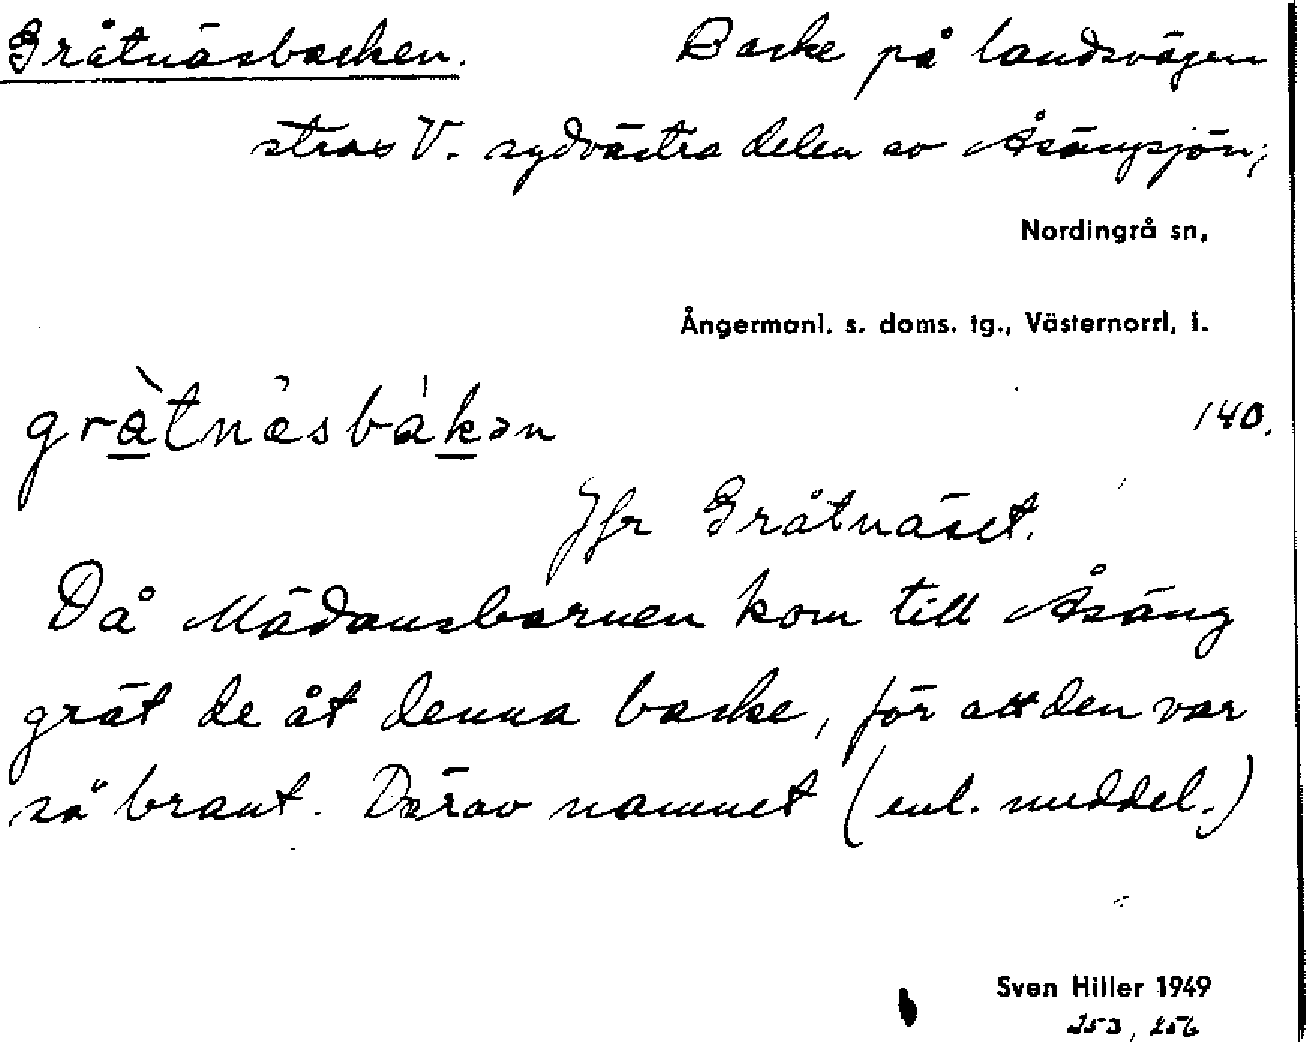 Gråtnäsbacken. Backe på landsvägen
strax V. sydvästra delen av Åsängsjön,
Nordingrå sn,
Ångermanl. s. doms. tg., Västernorrl. l.
gràtnä̀sbákən 140.
Jfr Gråtnäset.
Då Mädansbarnen kom till Åsäng
grät de åt denna backe, för att den var
så brant. Därav namnet (enl. meddel.)
Sven Hiller 1949
253, 256